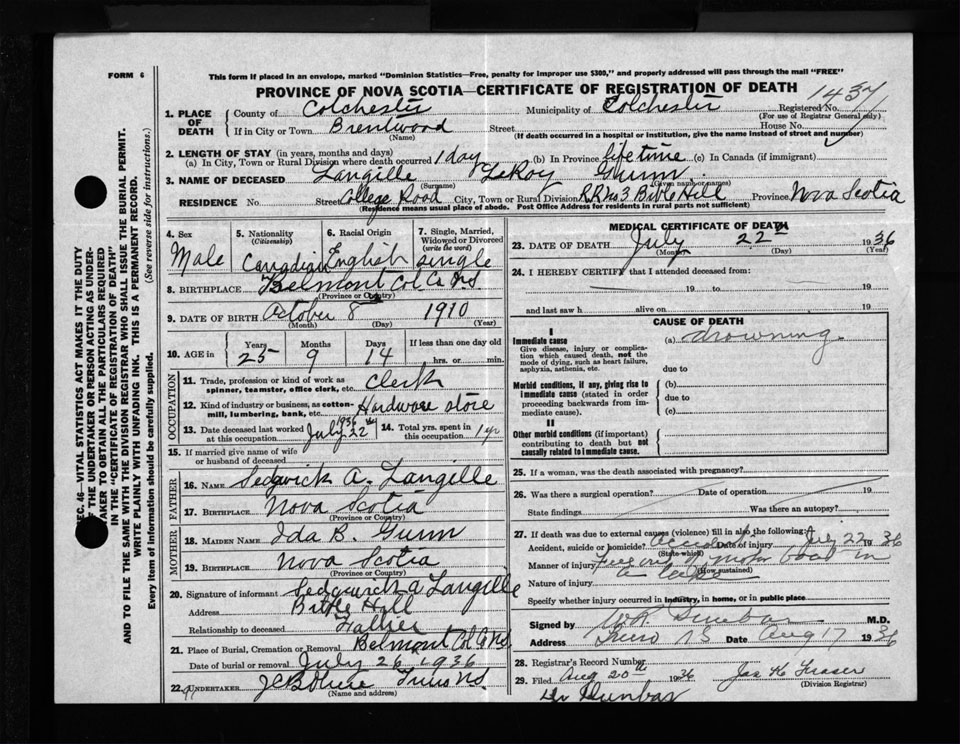 FORM 6
This form if placed in an envelope, marked "Dominion Statistics—Free, penalty for improper use $300," and properly addressed will pass through the mail "FREE"
PROVINCE OF NOVA SCOTIA—CERTIFICATE OF REGISTRATION OF DEATH
1437
1. PLACE OF DEATH
County of Colchester Municipality of Colchester Registered No.
(For use of Registrar General only)
If in City or Town Brentwood Street House No.
(Name) (If death occurred in a hospital or institution, give the name instead of street and number)
2. LENGTH OF STAY (in years, months and days)
(a) In City, Town or Rural Division where death occurred 1 day (b) In Province life time (c) In Canada (if immigrant)
3. NAME OF DECEASED Langille LeRoy Gunn
(Surname) (Given name or names)
RESIDENCE No. Street College Road City, Town or Rural Division R.R. No 3 Bible Hill Province Nova Scotia
(Residence means usual place of abode. Post Office Address for residents in rural parts not sufficient)
4. Sex Male
5. Nationality (Citizenship) Canadian
6. Racial Origin English
7. Single, Married, Widowed or Divorced (write the word) single
8. BIRTHPLACE Belmont Col. Co. N.S.
(Province or Country)
9. DATE OF BIRTH October 8 1910
(Month) (Day) (Year)
10. AGE in Years 25 Months 9 Days 14 If less than one day old hrs. or min.
OCCUPATION
11. Trade, profession or kind of work as spinner, teamster, office clerk, etc. Clerk
12. Kind of industry or business, as cotton-mill, lumbering, bank, etc. Hardware store
13. Date deceased last worked at this occupation July 22 1936
14. Total yrs. spent in this occupation 1 yr
15. If married give name of wife or husband of deceased
FATHER
16. NAME Sedgwick A. Langille
17. BIRTHPLACE Nova Scotia
(Province or Country)
MOTHER
18. MAIDEN NAME Ida B. Gunn
19. BIRTHPLACE Nova Scotia
(Province or Country)
20. Signature of informant Sedgwick A Langille
Address Bible Hill
Relationship to deceased Father
21. Place of Burial, Cremation or Removal Belmont Col Co N.S.
Date of burial or removal July 26 1936
22. UNDERTAKER Truro N.S.
(Name and address)
MEDICAL CERTIFICATE OF DEATH
23. DATE OF DEATH July 22 1936
(Month) (Day) (Year)
24. I HEREBY CERTIFY that I attended deceased from:
19 to 19
and last saw h alive on 19
CAUSE OF DEATH
I
Immediate cause (a) drowning
Give disease, injury or complication which caused death, not the mode of dying, such as heart failure, asphyxia, asthenia, etc.
due to
Morbid conditions, if any, giving rise to immediate cause (stated in order proceeding backwards from immediate cause).
(b)
due to
(c)
II
Other morbid conditions (if important) contributing to death but not causally related to immediate cause.
25. If a woman, was the death associated with pregnancy?
26. Was there a surgical operation? Date of operation 19
State findings Was there an autopsy?
27. If death was due to external causes (violence) fill in also the following:
Accident, suicide or homicide? Accident Date of injury July 22 1936
(State which)
Manner of injury motor boat in
(How sustained)
a lake
Nature of injury
Specify whether injury occurred in industry, in home, or in public place
Signed by Dunbar M.D.
Address Truro Date Aug 17 1936
28. Registrar's Record Number
29. Filed Aug 20th 1936 Jas H Fraser
(Division Registrar)
Dr Dunbar
SEC. 46—VITAL STATISTICS ACT MAKES IT THE DUTY
OF THE UNDERTAKER OR PERSON ACTING AS UNDERTAKER TO OBTAIN ALL THE PARTICULARS REQUIRED
IN THE "CERTIFICATE OF REGISTRATION OF DEATH"
AND TO FILE THE SAME WITH THE DIVISION REGISTRAR WHO SHALL ISSUE THE BURIAL PERMIT.
WRITE PLAINLY WITH UNFADING INK. THIS IS A PERMANENT RECORD.
Every item of information should be carefully supplied. (See reverse side for instructions.)